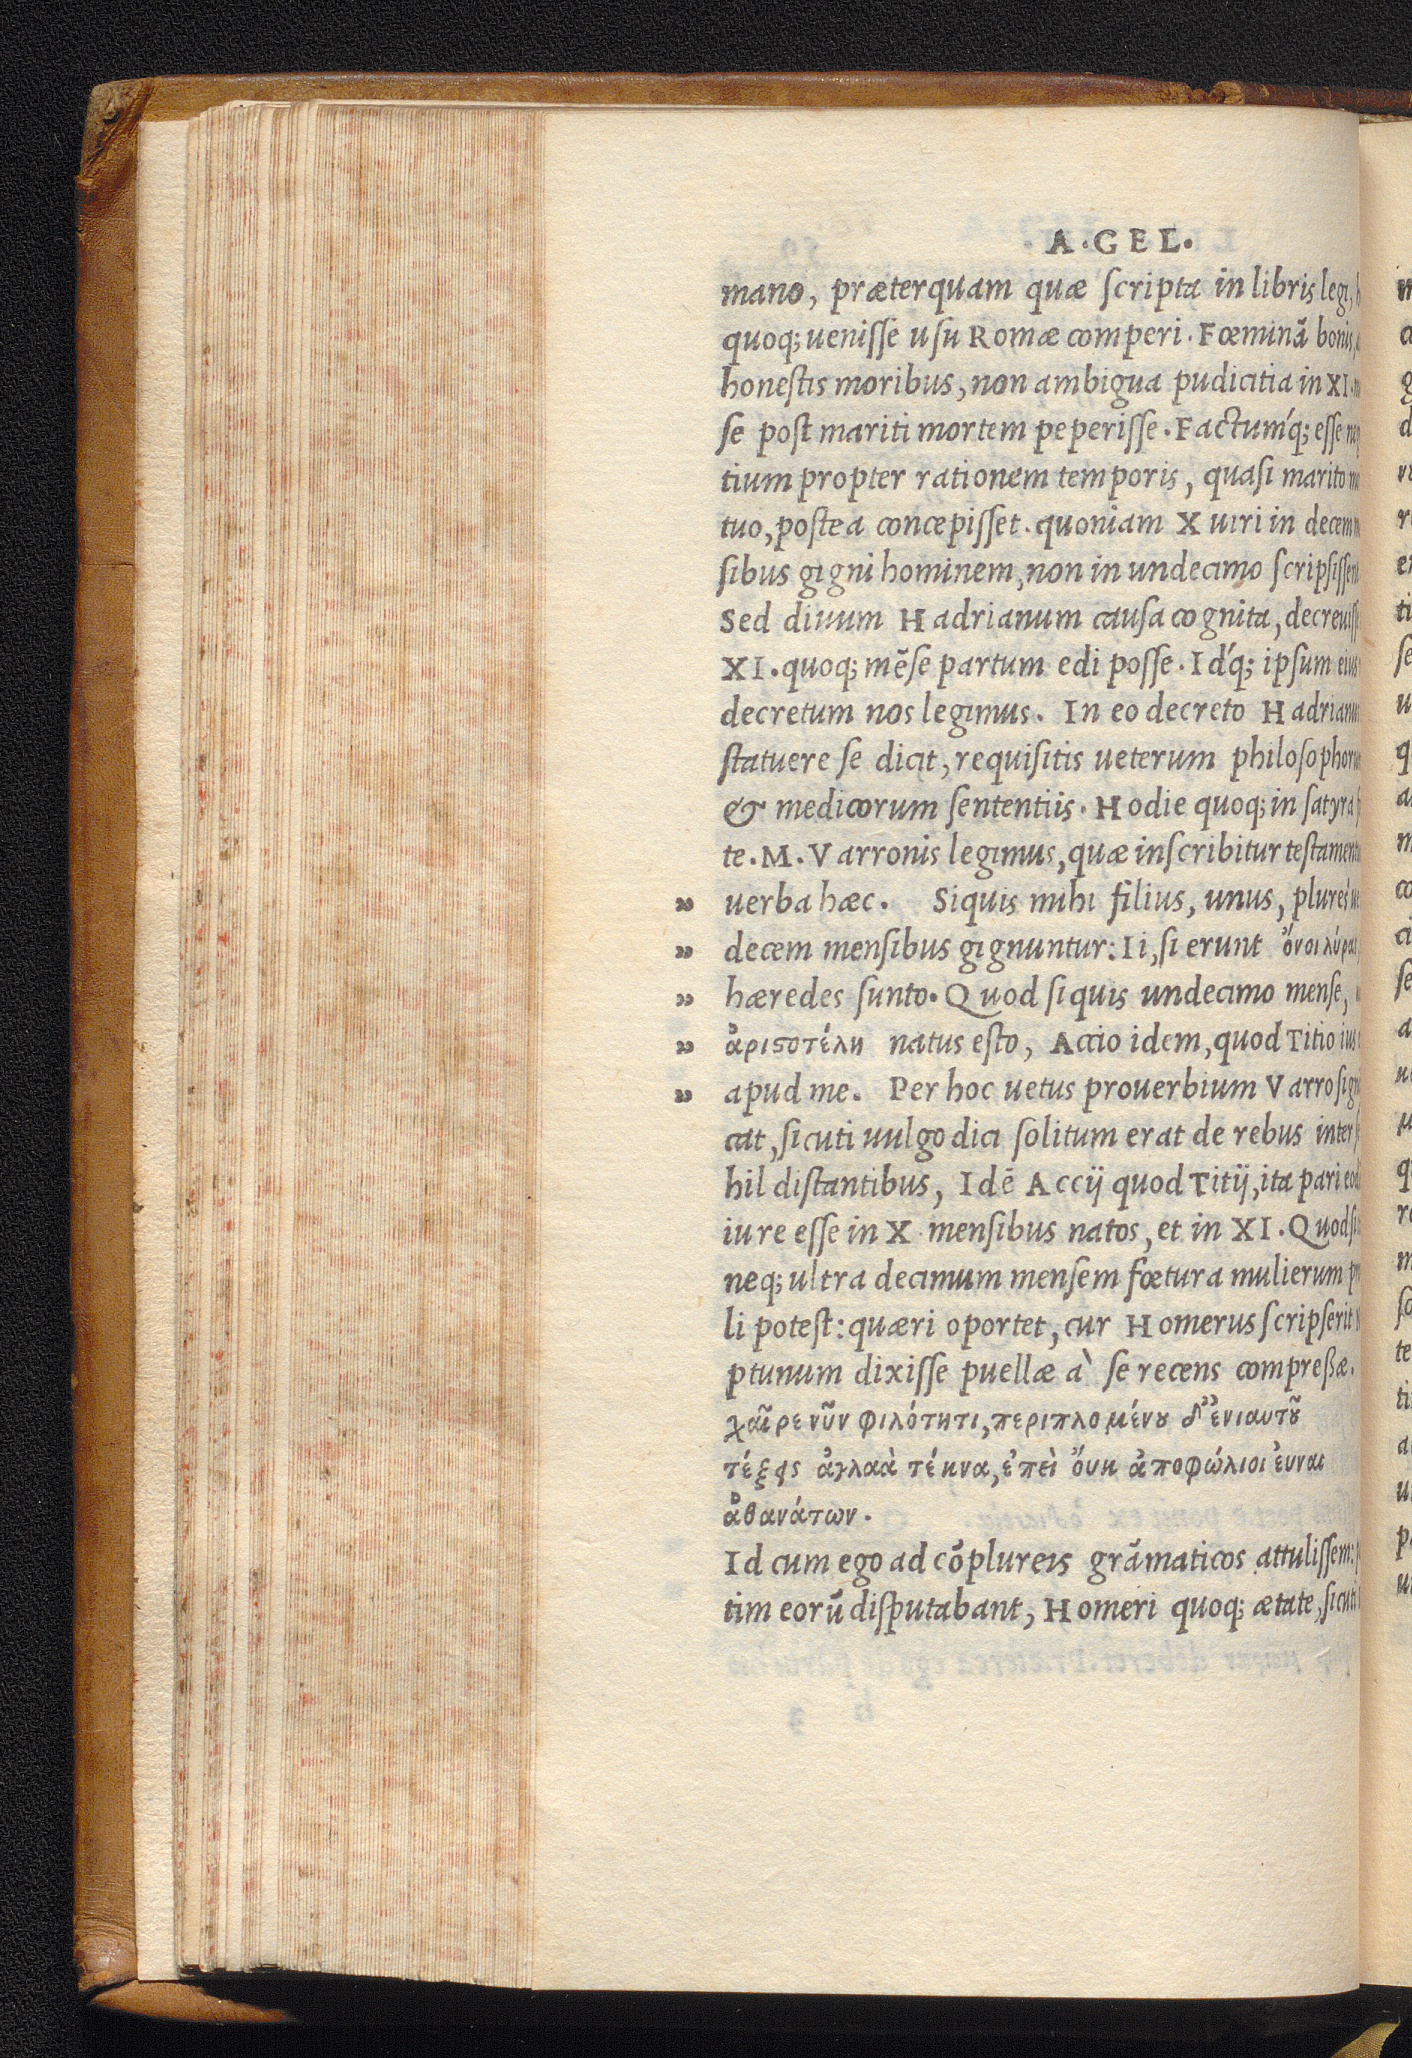 A.GEL.
mano, præterquam quæ scripta in libris legi,
quoq; uenisse usu Romæ comperi. Fœminã bonis,
honestis moribus, non ambigua pudicitia in XI.
se post mariti mortem peperisse. Factum'q; esse
tium propter rationem temporis, quasi marito
tuo, postea concepisset. quoniam X uiri in decem
sibus gigni hominem, non in undecimo scripsissent
Sed diuum Hadrianum causa cognita, decreuiss
XI. quoq; mẽse partum edi posse. Id'q; ipsum eius
decretum nos legimus. In eo decreto Hadrianu
statuere se dicit, requisitis ueterum philosophoru
& medicorum sententiis. Hodie quoq; in satyra
te. M. Varronis legimus, quæ inscribitur testament
” uerba hæc. Siquis mihi filius, unus, plures'ue
” decem mensibus gignuntur: Ii, si erunt ὄνοι λύρας
” hæredes sunto. Quod siquis undecimo mense,
” ἀριστοτέλη natus esto, Accio idem, quod Titio ius
” apud me. Per hoc uetus prouerbium Varro sign
cat, sicuti uulgo dici solitum erat de rebus inter
hil distantibus, Idẽ Accij quod Titij, ita pari eod
iure esse in X mensibus natos, et in XI. Quod si
neq; ultra decimum mensem fœtura mulierum
li potest: quæri oportet, cur Homerus scripserit
ptunum dixisse puellæ à se recens compreßæ.
χαῖρε νῦν φιλότητι, περιπλομένου δ' ἐνιαυτοῦ
τέξεις ἀγλαὰ τέκνα, ἐπεὶ ὄυκ ἀποφώλιοι ἐυναὶ
ἀθανάτων.
Id cum ego ad cõplureis grãmaticos attulissem:
tim eorũ disputabant, Homeri quoq; ætate, sicuti